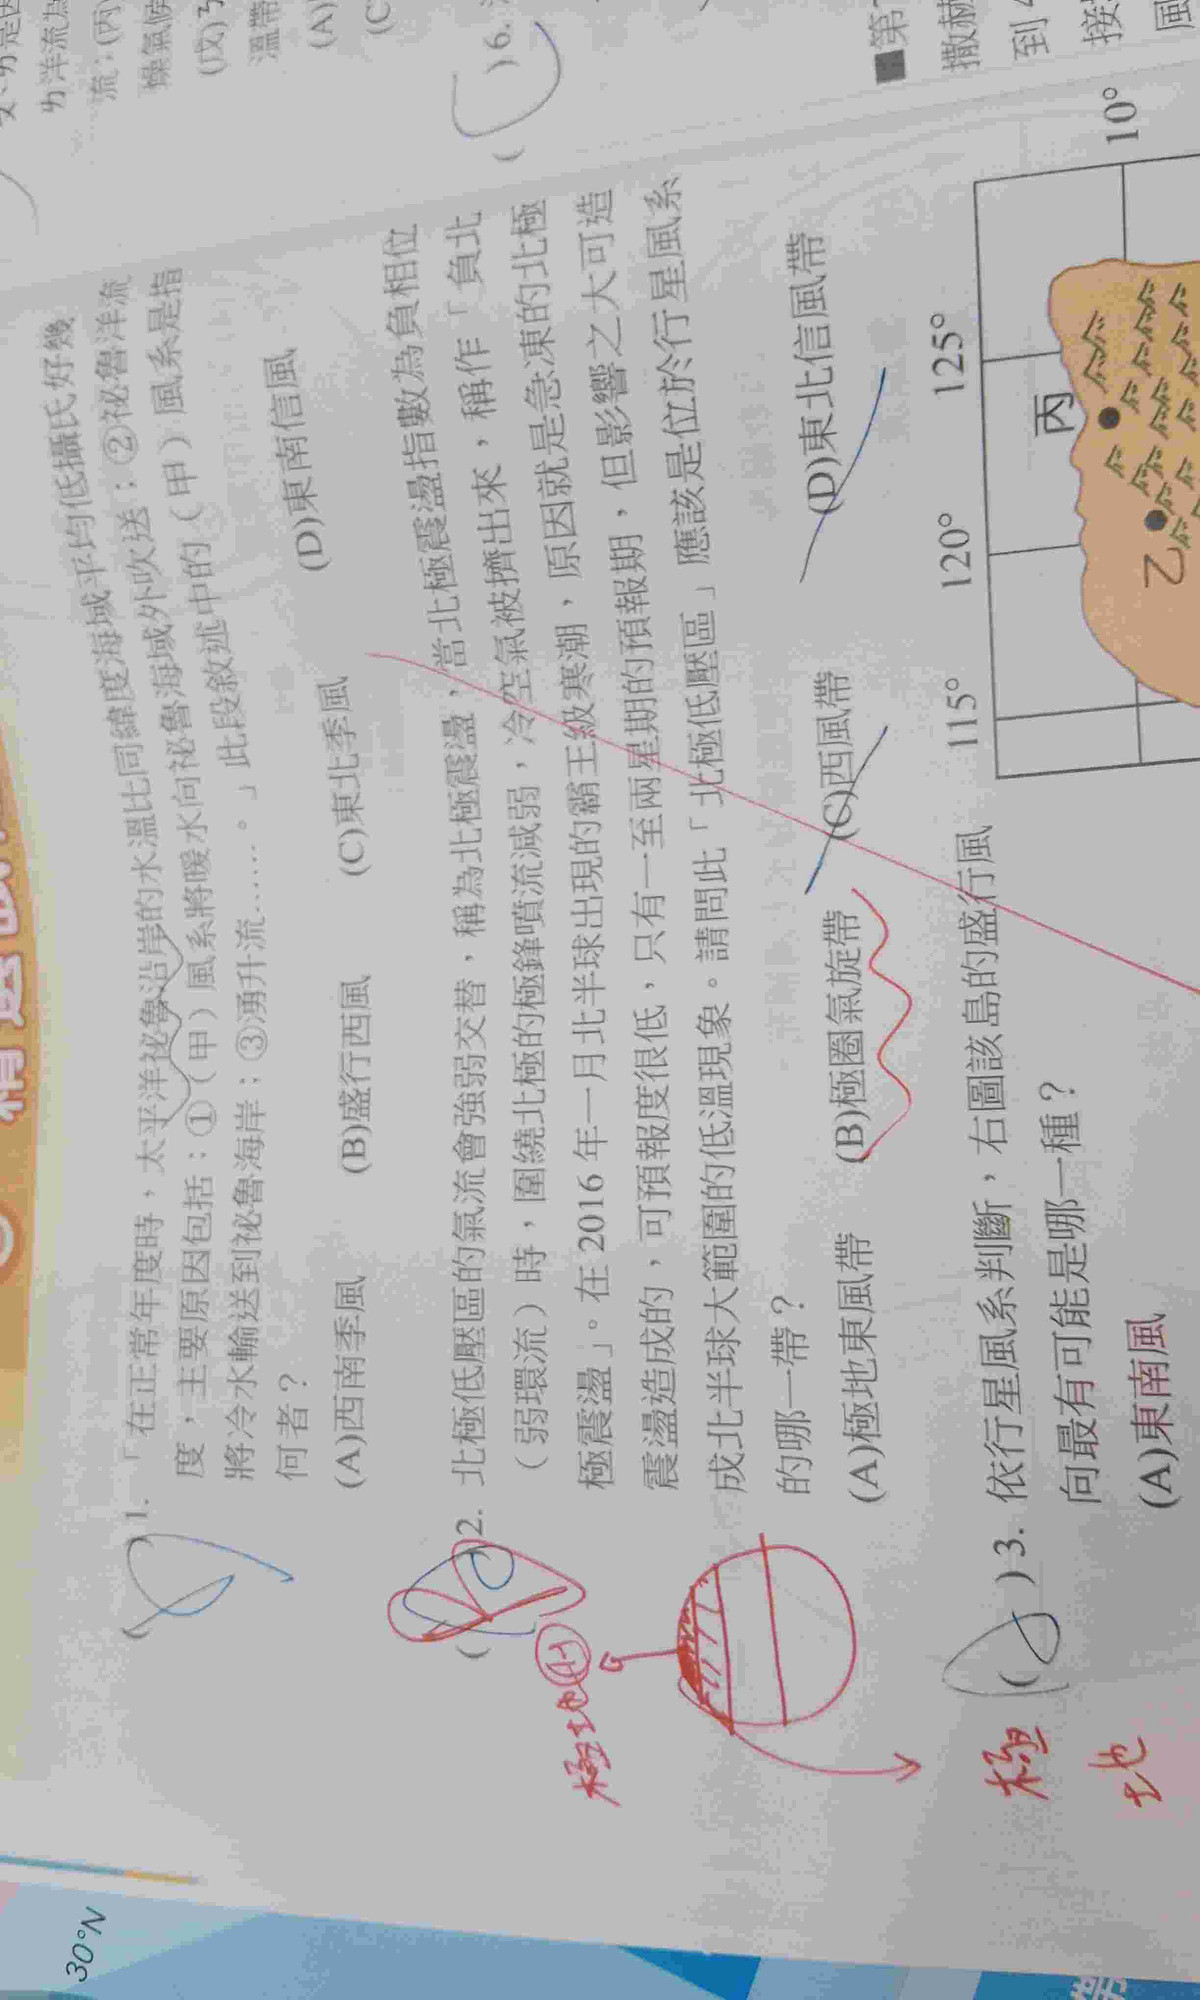 30°N
( )1. 「在正常年度時，太平洋祕魯沿岸的水溫比同緯度海域平均低攝氏好幾
度，主要原因包括：①（甲）風系將暖水向祕魯海域外吹送；②祕魯洋流
將冷水輸送到祕魯海岸；③湧升流……。」此段敘述中的（甲）風系是指
何者？
(A)西南季風 (B)盛行西風 (C)東北季風 (D)東南信風
( )2. 北極低壓區的氣流會強弱交替，稱為北極震盪，當北極震盪指數為負相位
（弱環流）時，圍繞北極的極鋒噴流減弱，冷空氣被擠出來，稱作「負北
極震盪」。在 2016 年一月北半球出現的霸王級寒潮，原因就是急凍的北極
震盪造成的，可預報度很低，只有一至兩星期的預報期，但影響之大可造
成北半球大範圍的低溫現象。請問此「北極低壓區」應該是位於行星風系
的哪一帶？
(A)極地東風帶 (B)極圈氣旋帶 (C)西風帶 (D)東北信風帶
極地
極
地
( )3. 依行星風系判斷，右圖該島的盛行風
向最有可能是哪一種？
(A)東南風
115° 120° 125°
10°
丙
乙
( )6.
■第
撒赫
到
接
風
ㄌ洋流為
流；(丙)
燥氣候
(戊)
溫帶
(A)
(C